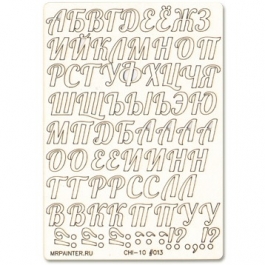 АБВГДЕЁЖЗ
ИЙКЛМНОП
РСТУФХЦЧЯ
ШЩЪЫЬЭЮ
МПДБАААА
ООЕЕИИНН
ТТРРССЛЛ
ВВККППУУ
MRPAINTER.RU CHI-10 #013